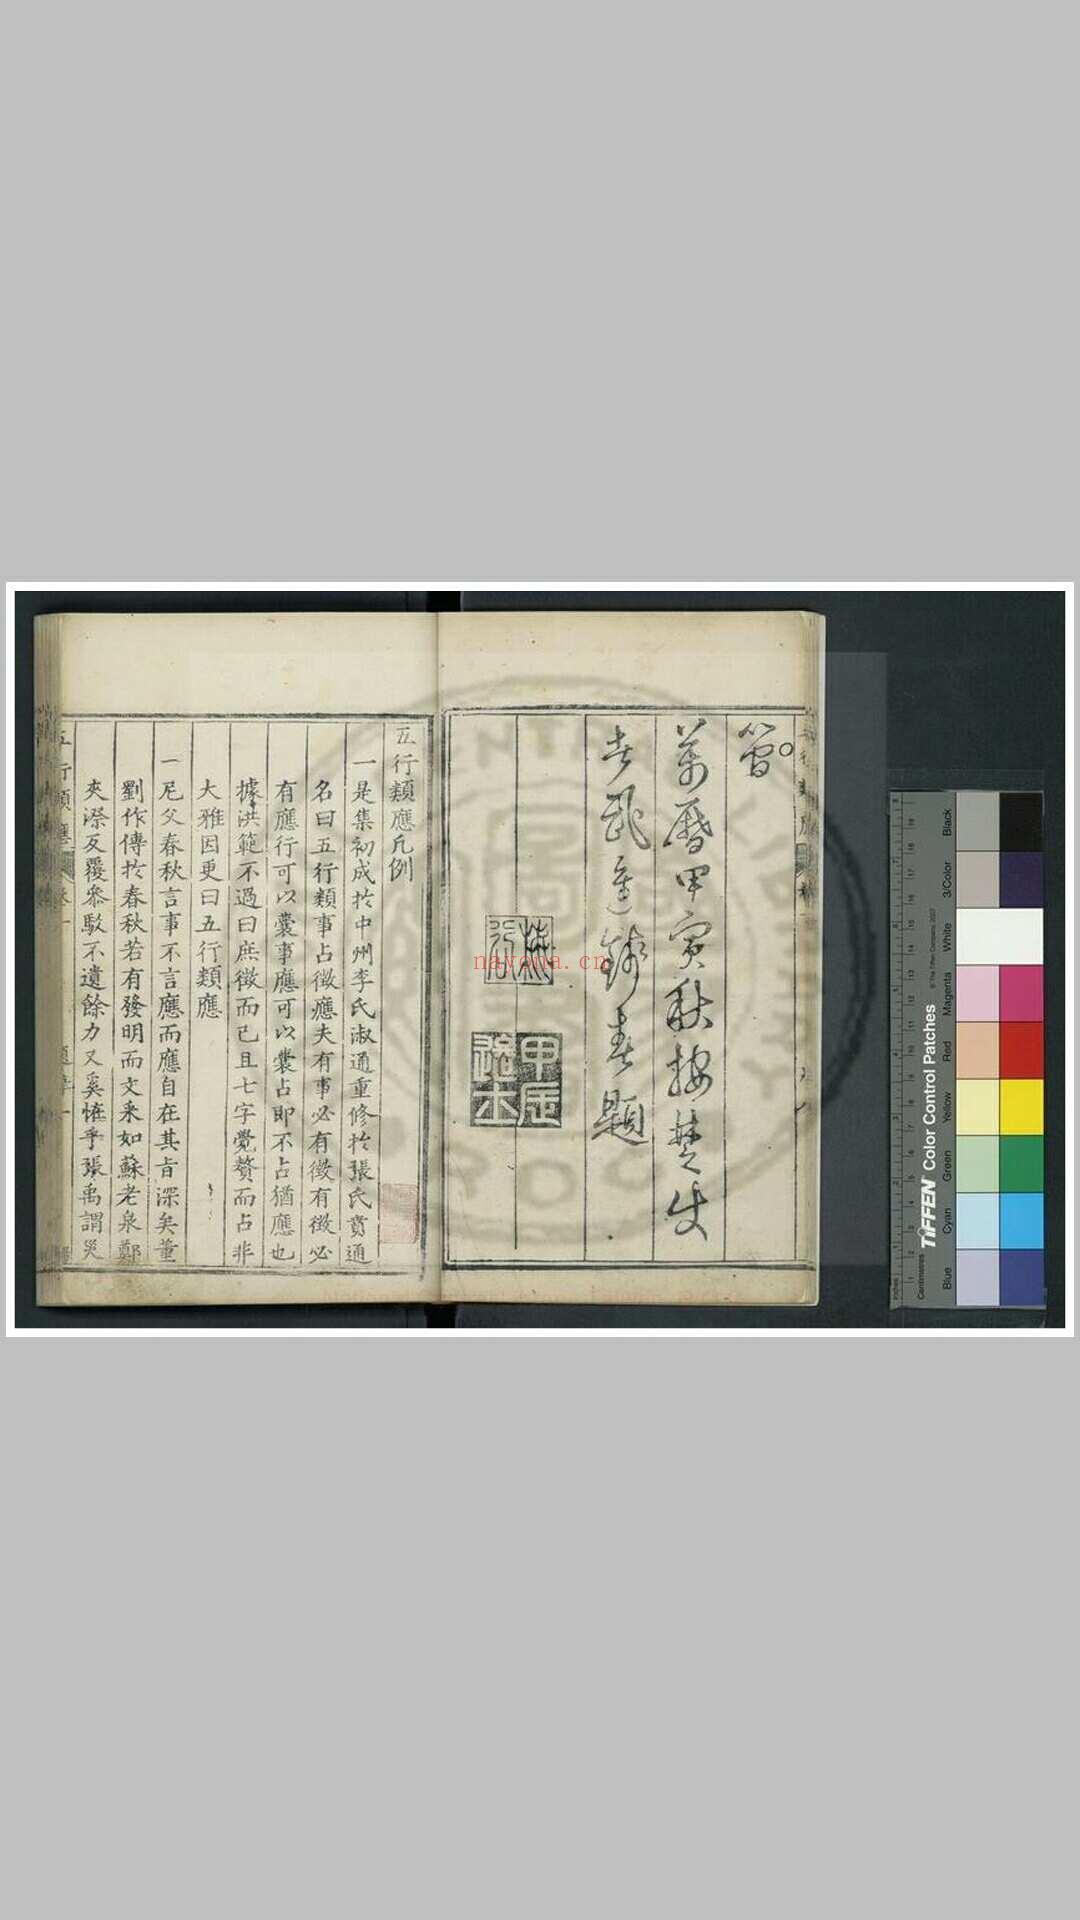 萬曆甲寅秋按楚使
者武進錢春題
甲辰進士
nayona.cn
五行類應凡例
一是集初成於中州李氏淑通重修於張氏賁通
名曰五行類事占徵應夫有事必有徵有徵必
有應行可以囊事應可以囊占即不占猶應也
據洪範不過曰庶徵而已且七字覺贅而占非
大雅因更曰五行類應
一尼父春秋言事不言應而應自在其旨深矣董
劉作傳於春秋若有發明而文采如蘇老泉鄭
夾漈反覆叅駁不遺餘力又奚恠乎張禹謂災
五行類應
Black
3/Color
White
Magenta
Red
Yellow
Green
Cyan
Blue
TIFFEN Color Control Patches
© The Tiffen Company, 2007
Centimetres
Inches